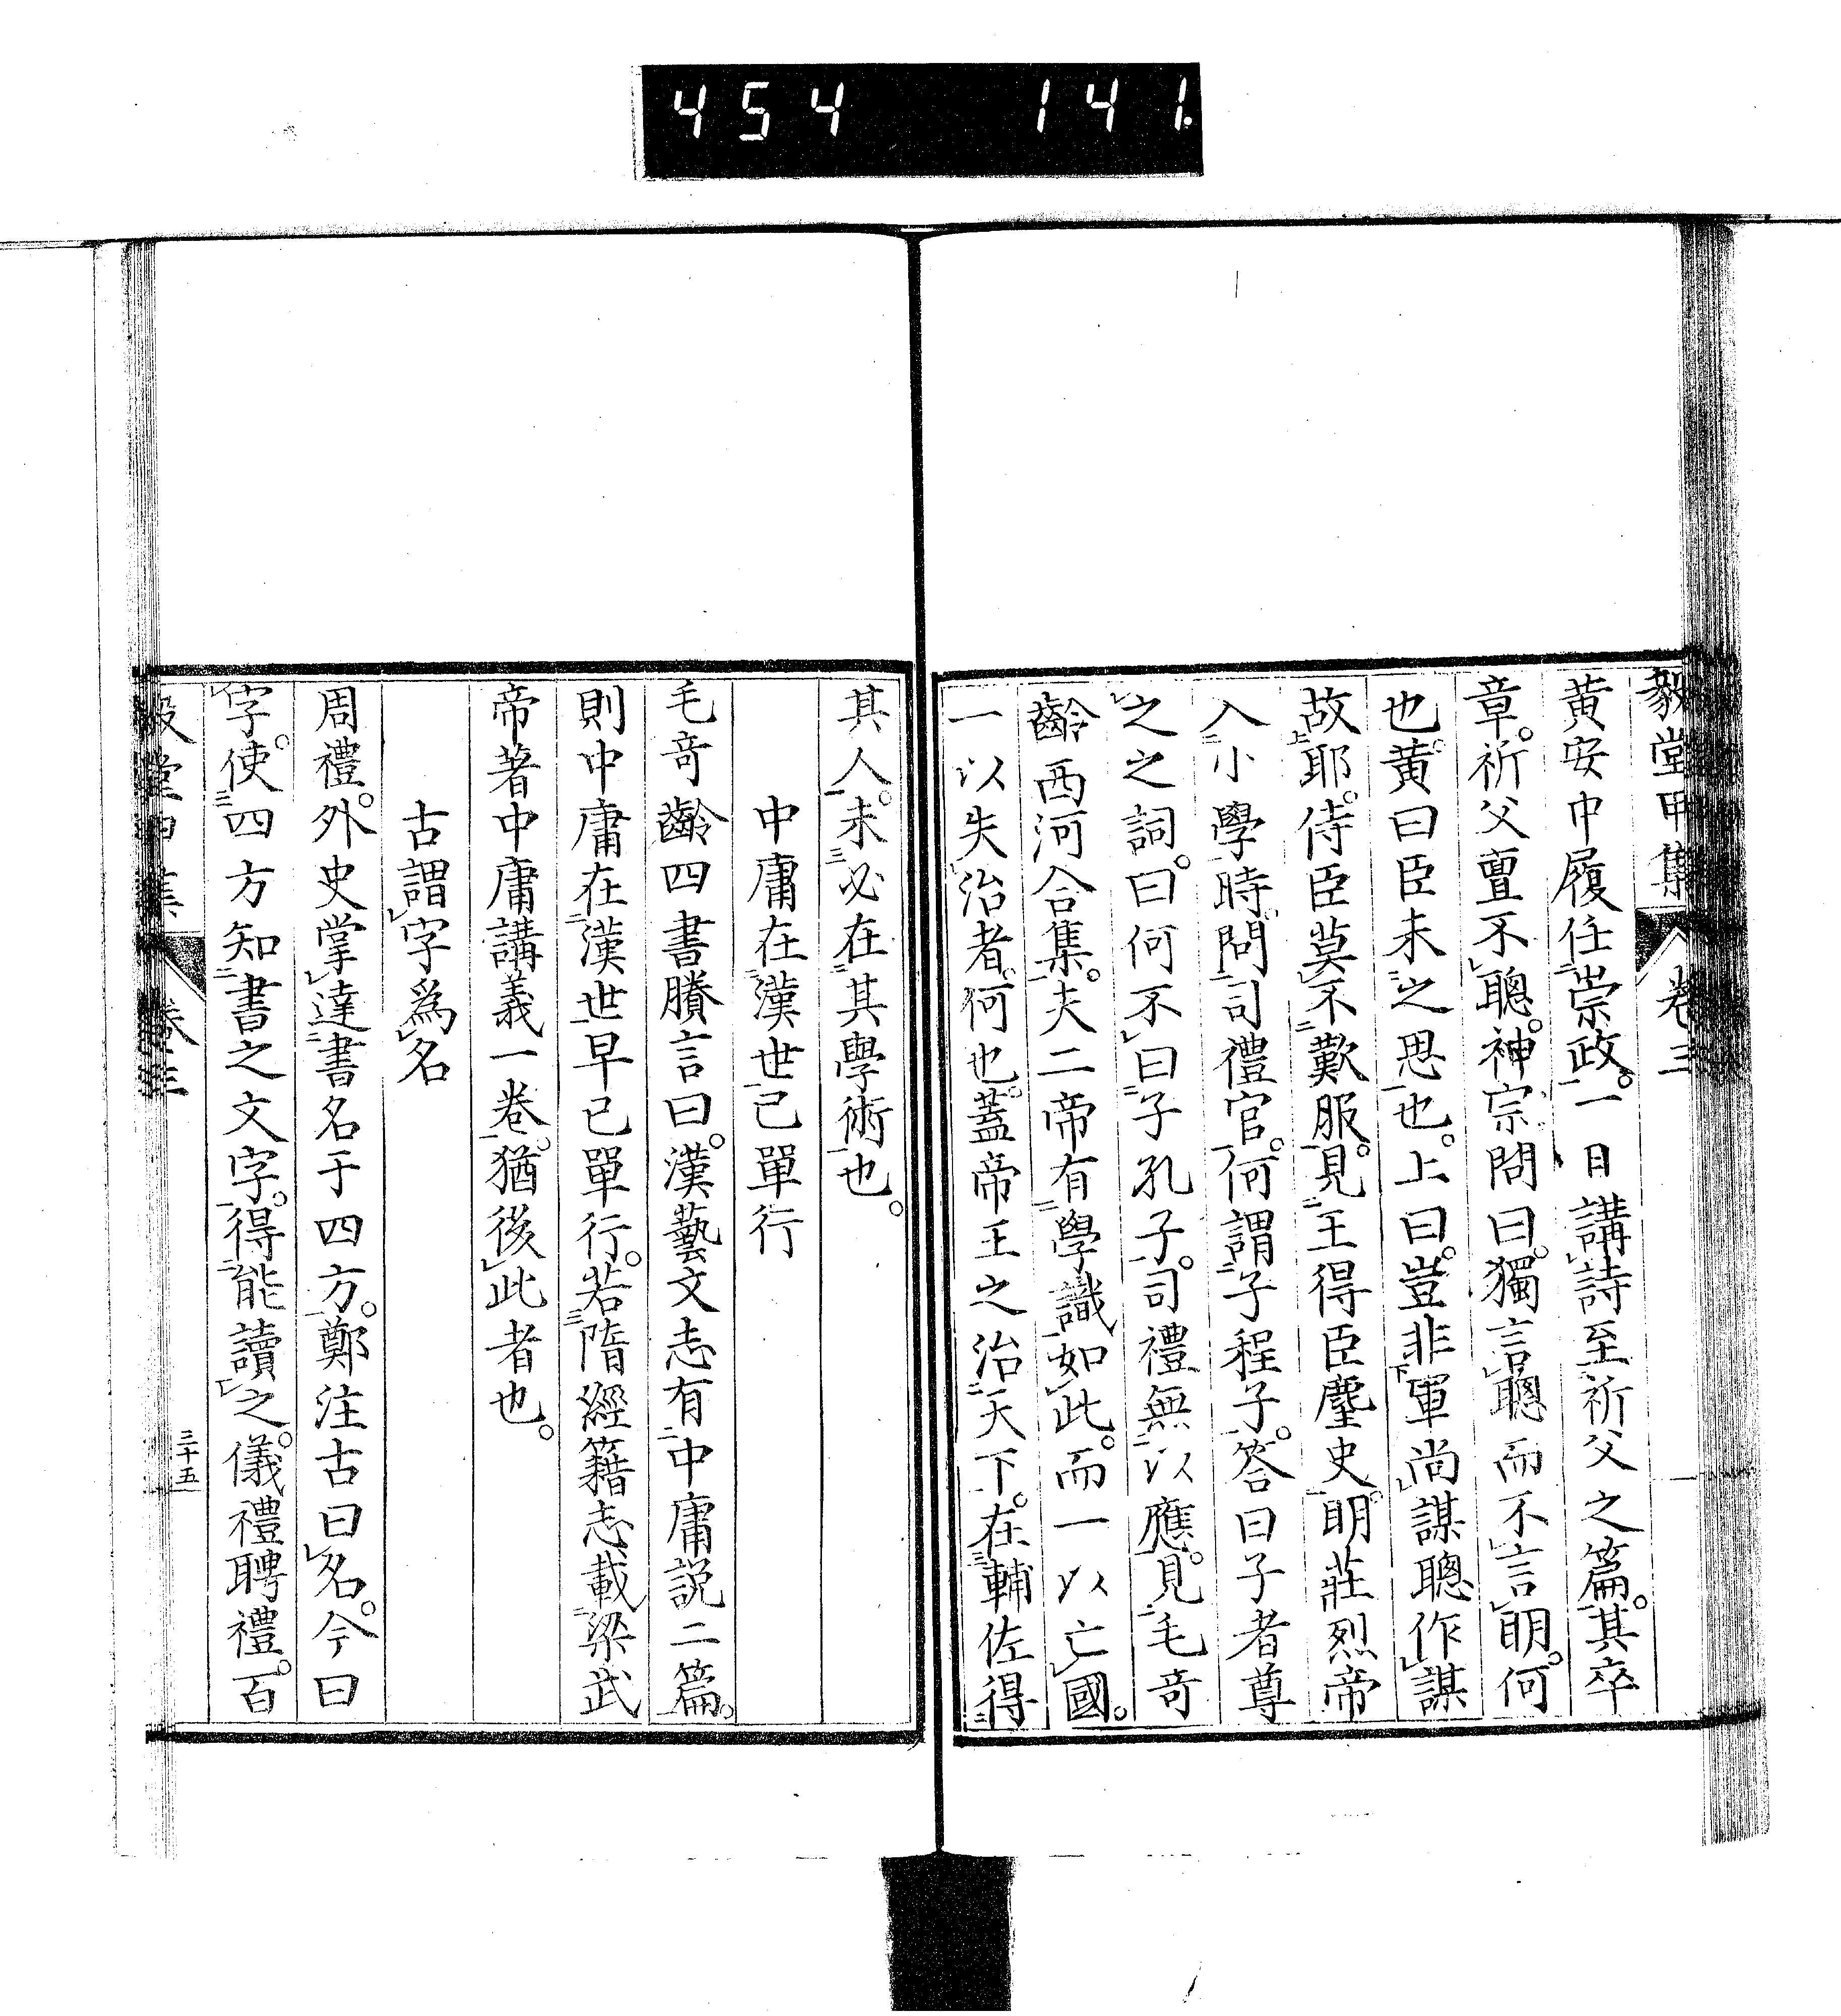 454 141
毅堂甲集 卷三
黄安中履任崇政。一日講詩至祈父之篇。其卒
章。祈父亶不聰。神宗問曰。獨言聰而不言明。何
也。黄曰臣未之思也。上曰。豈非軍尚謀聰作謀
故耶。侍臣莫不歎服。見王得臣麈史。明莊烈帝
入小學時。問司禮官。何謂子程子。答曰子者尊
之之詞。曰何不曰子孔子。司禮無以應。見毛奇
齡西河合集。夫二帝有學識如此。而一以亡國。
一以失治者。何也。蓋帝王之治天下。在輔佐得
其人。未必在其學術也。
中庸在漢世已單行
毛奇齡四書賸言曰。漢藝文志有中庸説二篇。
則中庸在漢世早已單行。若隋經籍志載梁武
帝著中庸講義一卷。猶後此者也。
古謂字爲名
周禮。外史掌達書名于四方。鄭注古曰名。今曰
字。使四方知書之文字。得能讀之。儀禮聘禮。百
毅堂甲集 卷三 三十五